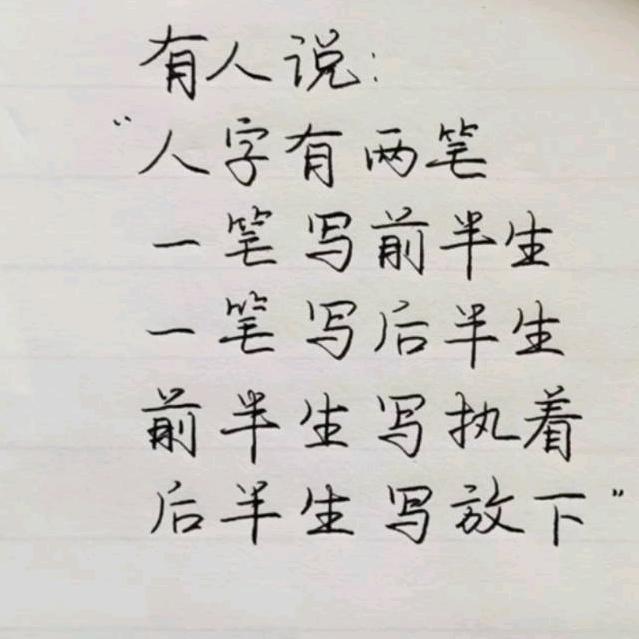 有人说:
“人字有两笔
一笔写前半生
一笔写后半生
前半生写执着
后半生写放下”